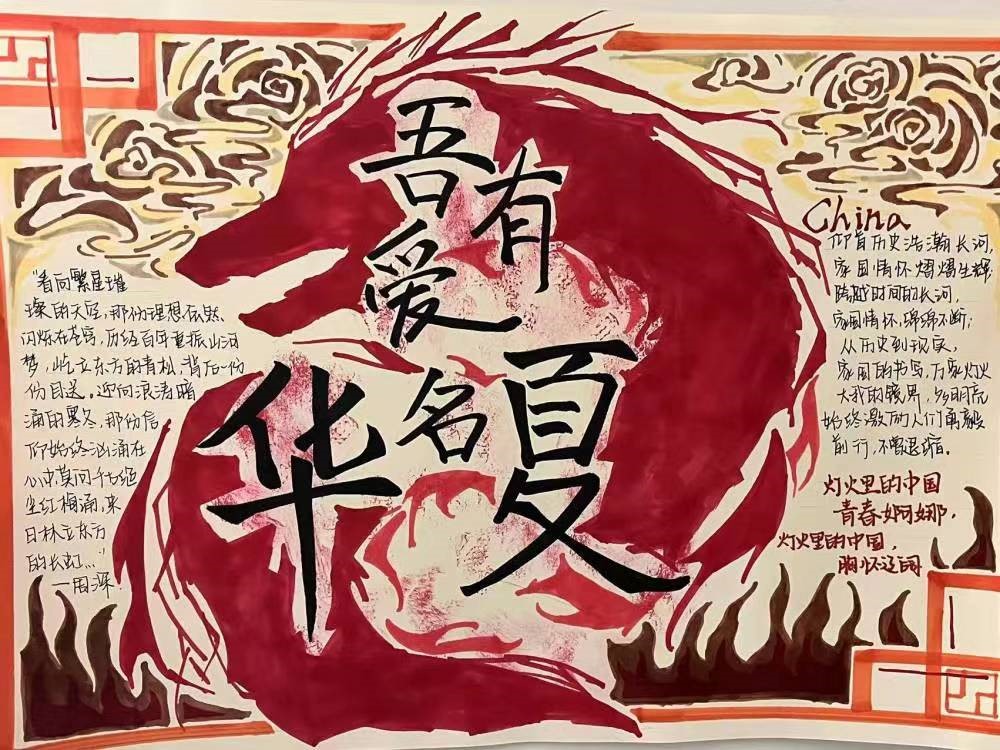 吾有
爱
华名夏
"看向繁星璀
璨的天空,那份理想依然
闪烁在苍穹,历经百年重振山河
梦,屹立东方的青松,背后一份
份目送,迎向浪涛暗
涌的寒冬,那份信
仰始终汹涌在
心中莫问千古绝
尘红梅涌,来
日林立东方
的长虹..."
一周深
China
仰首历史浩瀚长河,
家国情怀熠熠生辉;
跨越时间的长河,
家国情怀,绵绵不断;
从历史到现实,
家国的书写,万家灯火
大我的境界,
始终激励人们勇毅
前行,不曾退缩。
灯火里的中国
青春婀娜,
灯火里的中国,
胸怀辽阔